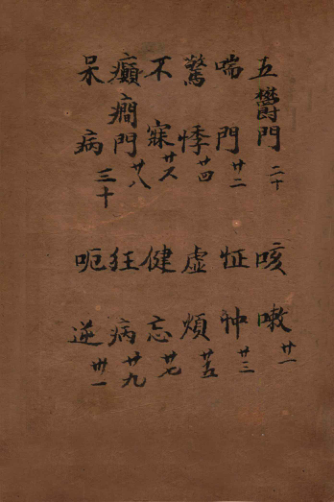 五鬱門 二十 咳嗽 廿一
喘門 廿二 怔忡 廿三
驚悸 廿四 虛煩 廿五
不寐 廿六 健忘 廿七
癲癎門 廿八 狂病 廿九
呆病 三十 呃逆 卅一